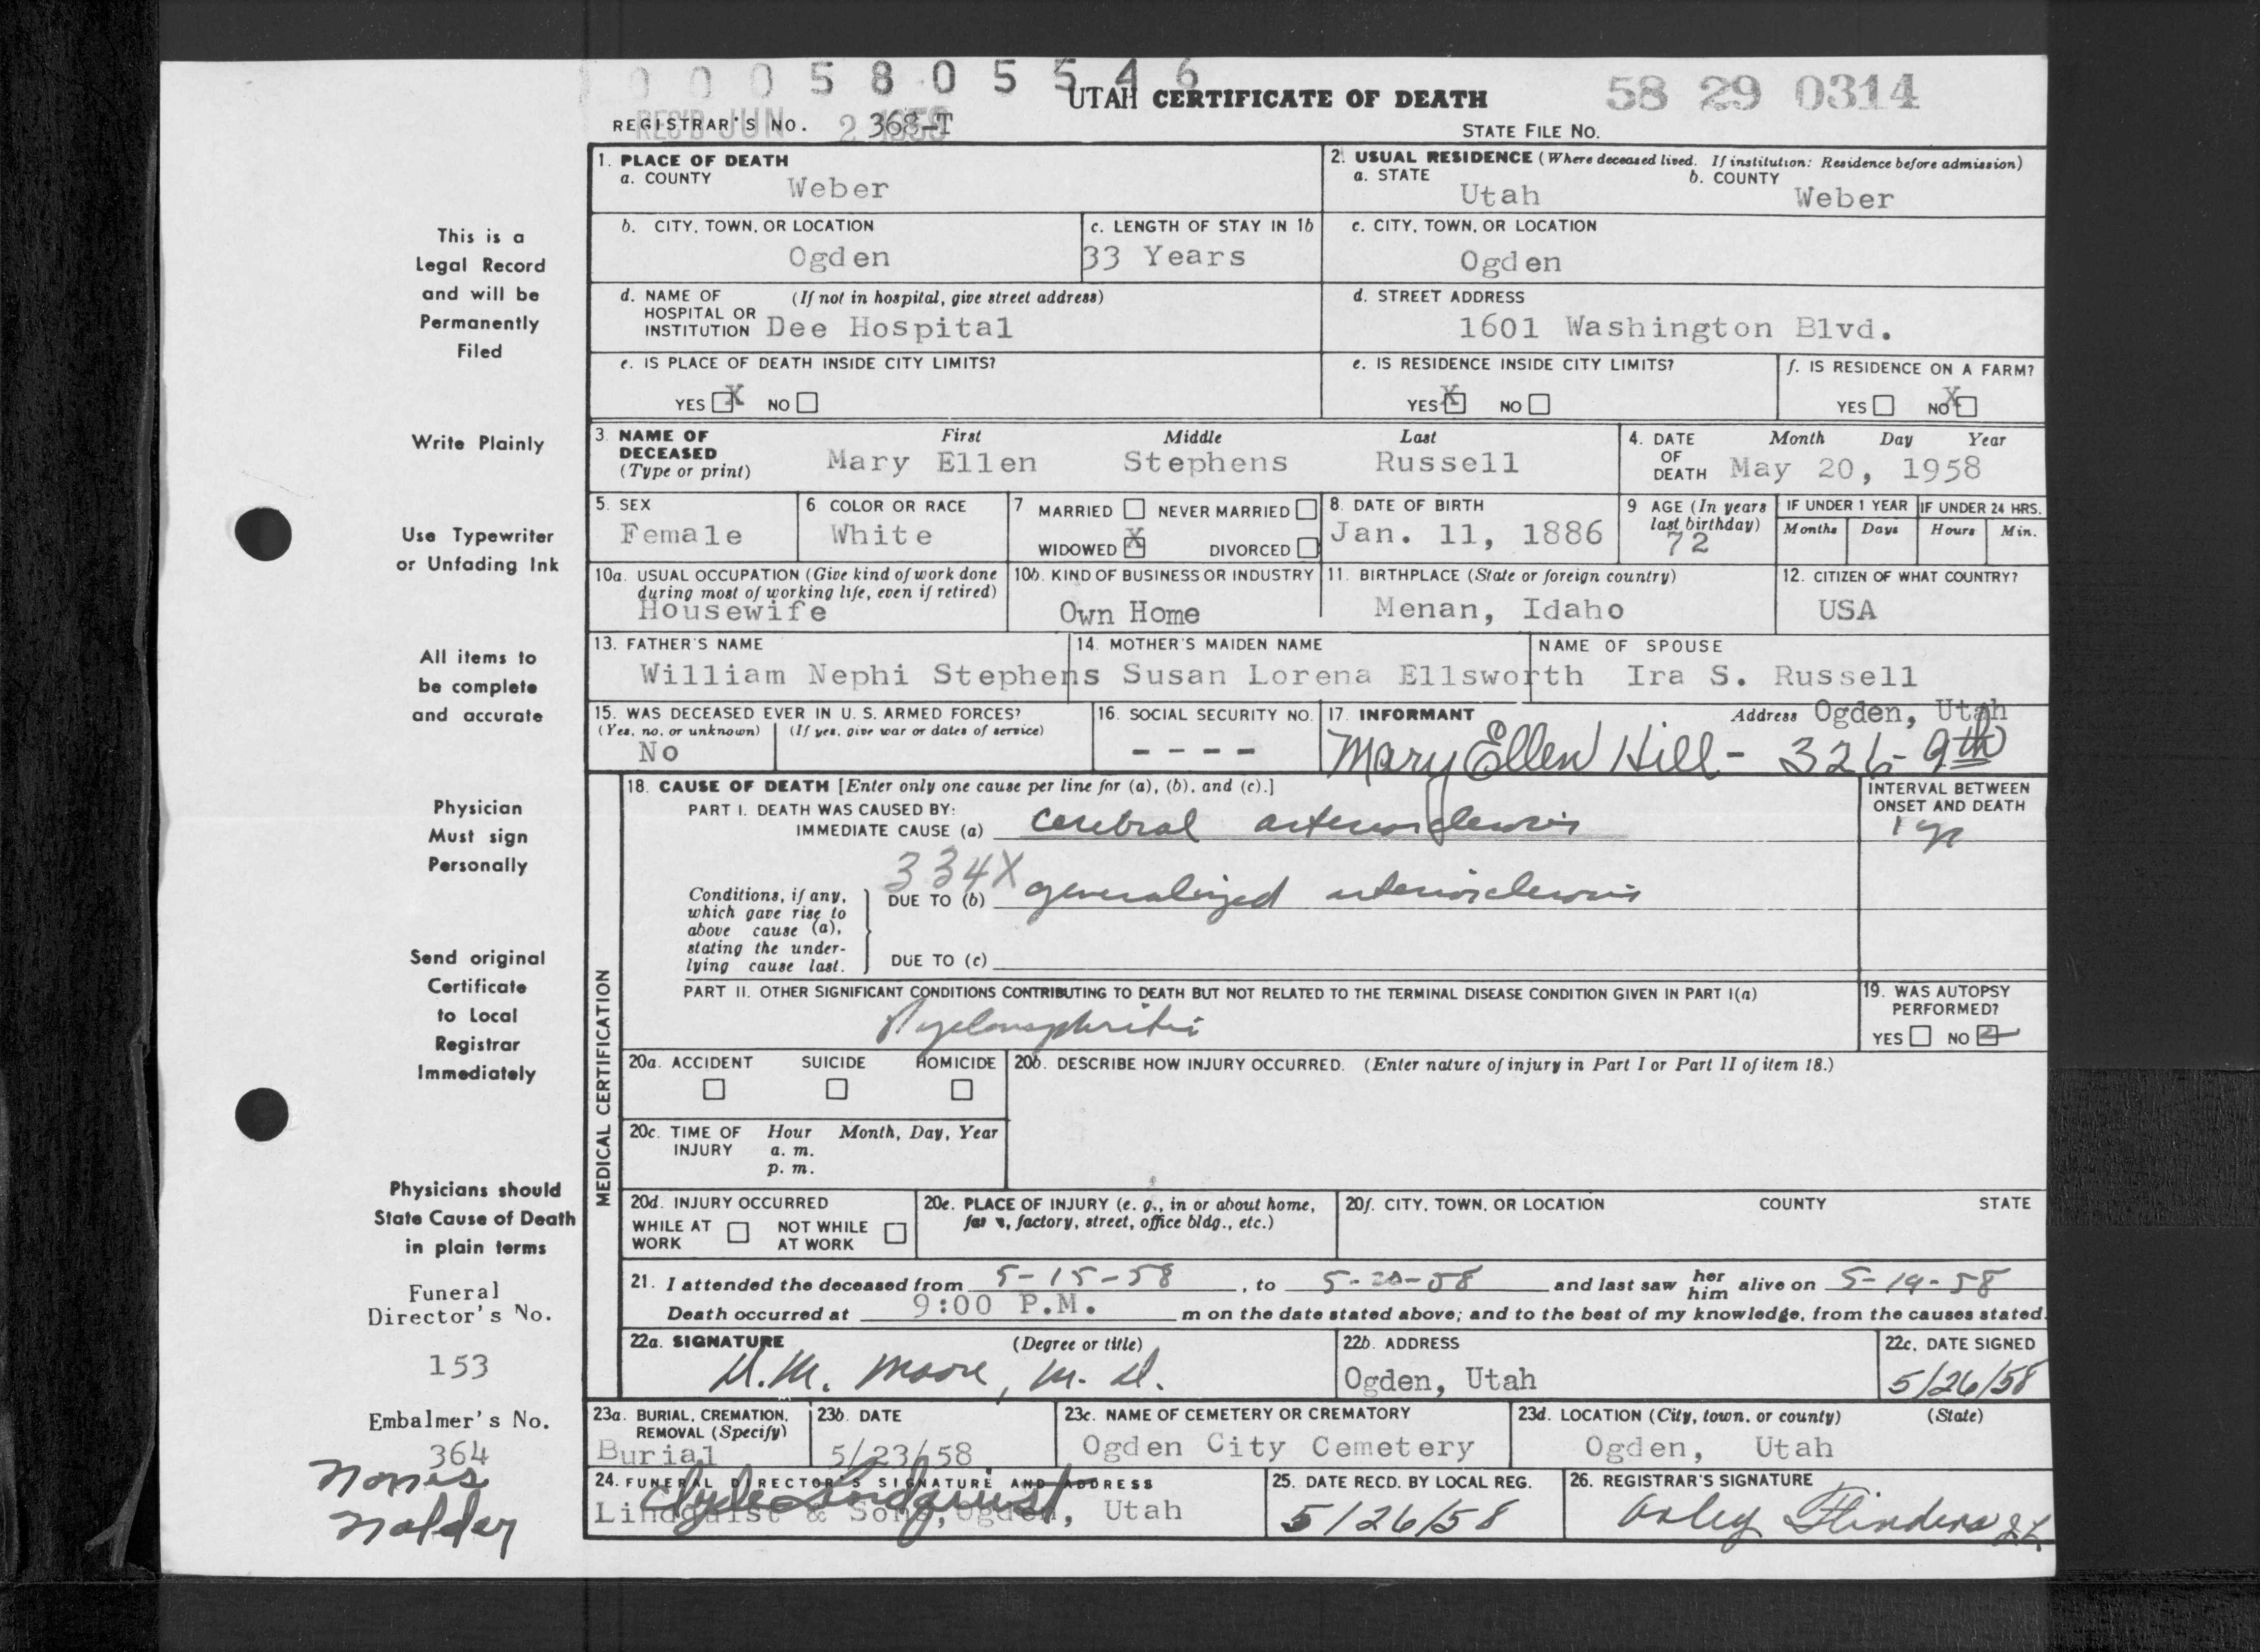 0 0 0 5 8 0 5 5 4 6
58 29 0314
UTAH CERTIFICATE OF DEATH
REC'D JUN 2 1958
REGISTRAR'S NO. 368-T
STATE FILE NO.
1. PLACE OF DEATH
a. COUNTY Weber
2. USUAL RESIDENCE (Where deceased lived. If institution: Residence before admission)
a. STATE Utah b. COUNTY Weber
b. CITY, TOWN, OR LOCATION Ogden
c. LENGTH OF STAY IN 1b 33 Years
c. CITY, TOWN, OR LOCATION Ogden
d. NAME OF HOSPITAL OR INSTITUTION (If not in hospital, give street address) Dee Hospital
d. STREET ADDRESS 1601 Washington Blvd.
e. IS PLACE OF DEATH INSIDE CITY LIMITS?
YES X NO
e. IS RESIDENCE INSIDE CITY LIMITS?
YES X NO
f. IS RESIDENCE ON A FARM?
YES NO X
3. NAME OF DECEASED (Type or print) First Middle Last
Mary Ellen Stephens Russell
4. DATE OF DEATH Month Day Year
May 20, 1958
5. SEX Female
6 COLOR OR RACE White
7 MARRIED NEVER MARRIED
WIDOWED X DIVORCED
8. DATE OF BIRTH Jan. 11, 1886
9 AGE (In years last birthday) 72
IF UNDER 1 YEAR Months Days
IF UNDER 24 HRS. Hours Min.
10a. USUAL OCCUPATION (Give kind of work done during most of working life, even if retired)
Housewife
10b. KIND OF BUSINESS OR INDUSTRY
Own Home
11. BIRTHPLACE (State or foreign country)
Menan, Idaho
12. CITIZEN OF WHAT COUNTRY?
USA
13. FATHER'S NAME
William Nephi Stephens
14. MOTHER'S MAIDEN NAME
Susan Lorena Ellsworth
NAME OF SPOUSE
Ira S. Russell
15. WAS DECEASED EVER IN U. S. ARMED FORCES?
(Yes, no, or unknown) (If yes, give war or dates of service)
No
16. SOCIAL SECURITY NO.
- - - -
17. INFORMANT Address Ogden, Utah
Mary Ellen Hill - 326- 9th
MEDICAL CERTIFICATION
18. CAUSE OF DEATH [Enter only one cause per line for (a), (b), and (c).]
PART I. DEATH WAS CAUSED BY:
IMMEDIATE CAUSE (a) cerebral arteriosclerosis
INTERVAL BETWEEN ONSET AND DEATH
1 yr
334X
Conditions, if any, which gave rise to above cause (a), stating the underlying cause last.
DUE TO (b) generalized arteriosclerosis
DUE TO (c)
PART II. OTHER SIGNIFICANT CONDITIONS CONTRIBUTING TO DEATH BUT NOT RELATED TO THE TERMINAL DISEASE CONDITION GIVEN IN PART I(a)
Pyelonephritis
19. WAS AUTOPSY PERFORMED?
YES NO
20a. ACCIDENT SUICIDE HOMICIDE
20b. DESCRIBE HOW INJURY OCCURRED. (Enter nature of injury in Part I or Part II of item 18.)
20c. TIME OF INJURY Hour Month, Day, Year
a. m.
p. m.
20d. INJURY OCCURRED
WHILE AT WORK NOT WHILE AT WORK
20e. PLACE OF INJURY (e. g., in or about home, factory, street, office bldg., etc.)
20f. CITY, TOWN, OR LOCATION COUNTY STATE
21. I attended the deceased from 5-15-58, to 5-20-58 and last saw her him alive on 5-19-58
Death occurred at 9:00 P.M. m on the date stated above; and to the best of my knowledge, from the causes stated.
22a. SIGNATURE (Degree or title)
Moore, M. D.
22b. ADDRESS
Ogden, Utah
22c. DATE SIGNED
5/26/58
23a. BURIAL, CREMATION, REMOVAL (Specify)
Burial
23b. DATE
5/23/58
23c. NAME OF CEMETERY OR CREMATORY
Ogden City Cemetery
23d. LOCATION (City, town, or county) (State)
Ogden, Utah
24. FUNERAL DIRECTOR'S SIGNATURE AND ADDRESS
Clyde Lindquist
Lindquist & Sons, Ogden, Utah
25. DATE RECD. BY LOCAL REG.
5/26/58
26. REGISTRAR'S SIGNATURE
Flinders
This is a
Legal Record
and will be
Permanently
Filed
Write Plainly
Use Typewriter
or Unfading Ink
All items to
be complete
and accurate
Physician
Must sign
Personally
Send original
Certificate
to Local
Registrar
Immediately
Physicians should
State Cause of Death
in plain terms
Funeral
Director's No.
153
Embalmer's No.
364
Nalder